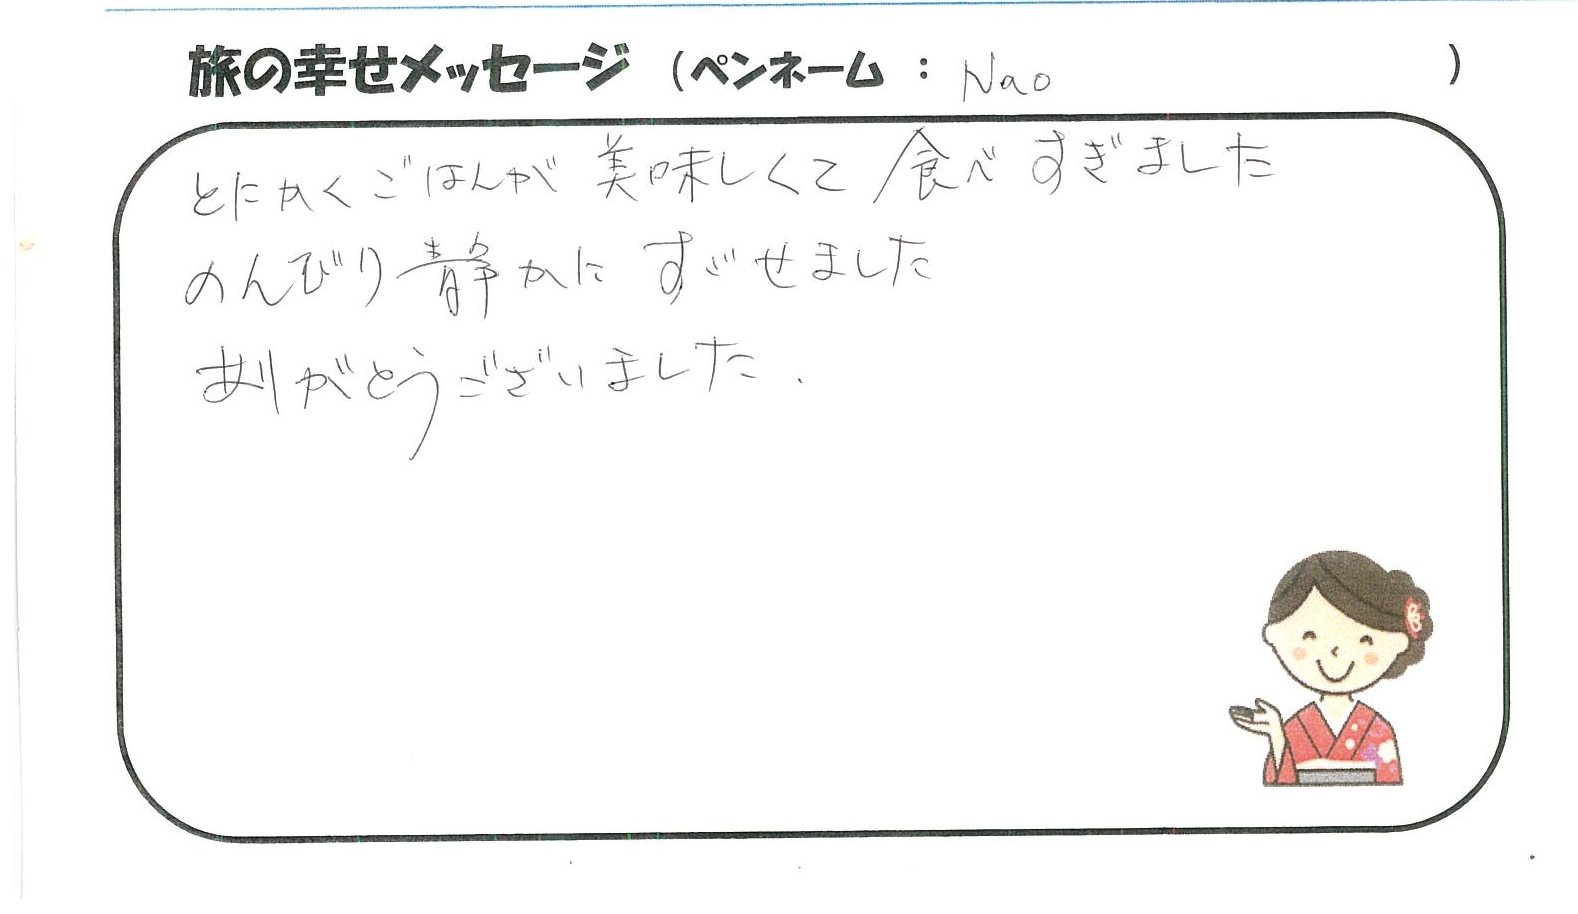 旅の幸せメッセージ (ペンネーム : Nao )
とにかくごはんが 美味しくて 食べすぎました
のんびり静かに すごせました
ありがとうございました.